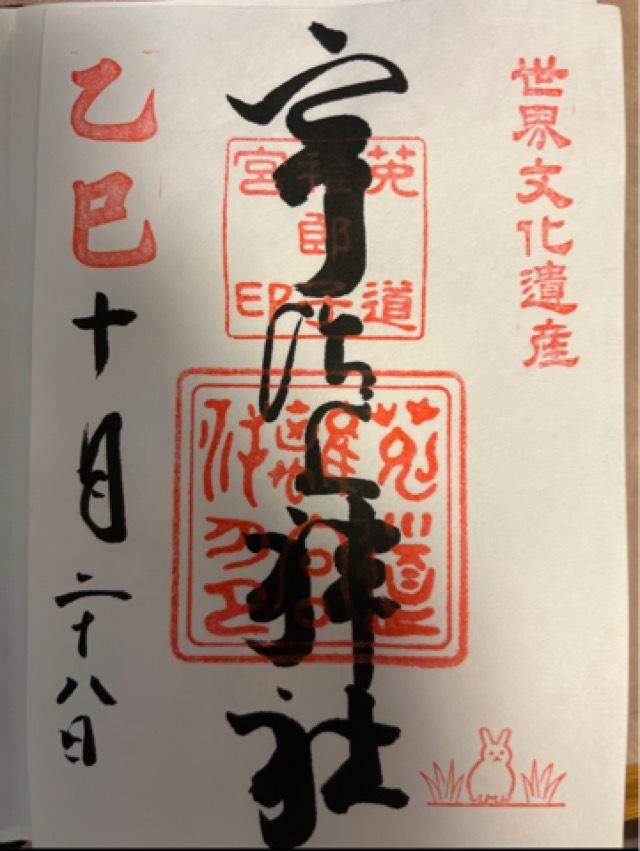 世界文化遺産
宇治上神社
莵道
稚郎子
宮印
乙巳十月二十八日